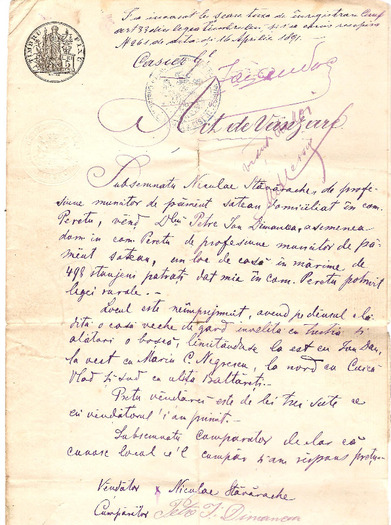 S'a incasat le scris taxa de inregistrare
art 33 din legea timbrului și s'a emis recipisa
No 261 de data de 16 Aprilie 1891.
Casier
TIMBRU
Act de Vânzare
Subsemnatu Niculae Stănărache, de profe-
siune muncitor de pămînt sătean domiciliat în com.
Peretu, vînd Dlui Petre Ion Dimancea, asemenea
dom in com. Peretu de profesiune muncitor de pă-
mînt sătean, un loc de casă în mărime de
498 stanjeni patrați dat mie in com. Peretu potrivit
legei rurale.—
Locul este neimprejmuit, avend pe dinsul clă-
dită o casă veche de gard invelită cu trestie și
alături o boscă, limitându-se la est cu Ion Dan,
la vest cu Marin C. Negrescu, la nord cu
Vlad și sud cu ulița
Prețu vânzărei este de lei trei sute ce
eu vîndëtorul i'am primit.
Subsemnatu cumparator declar că
cunosc locul c'l cumpăr și am respuns prețu.—
Vêndător x Niculae Stănărache
Cumpărător Petre I. Dimancea